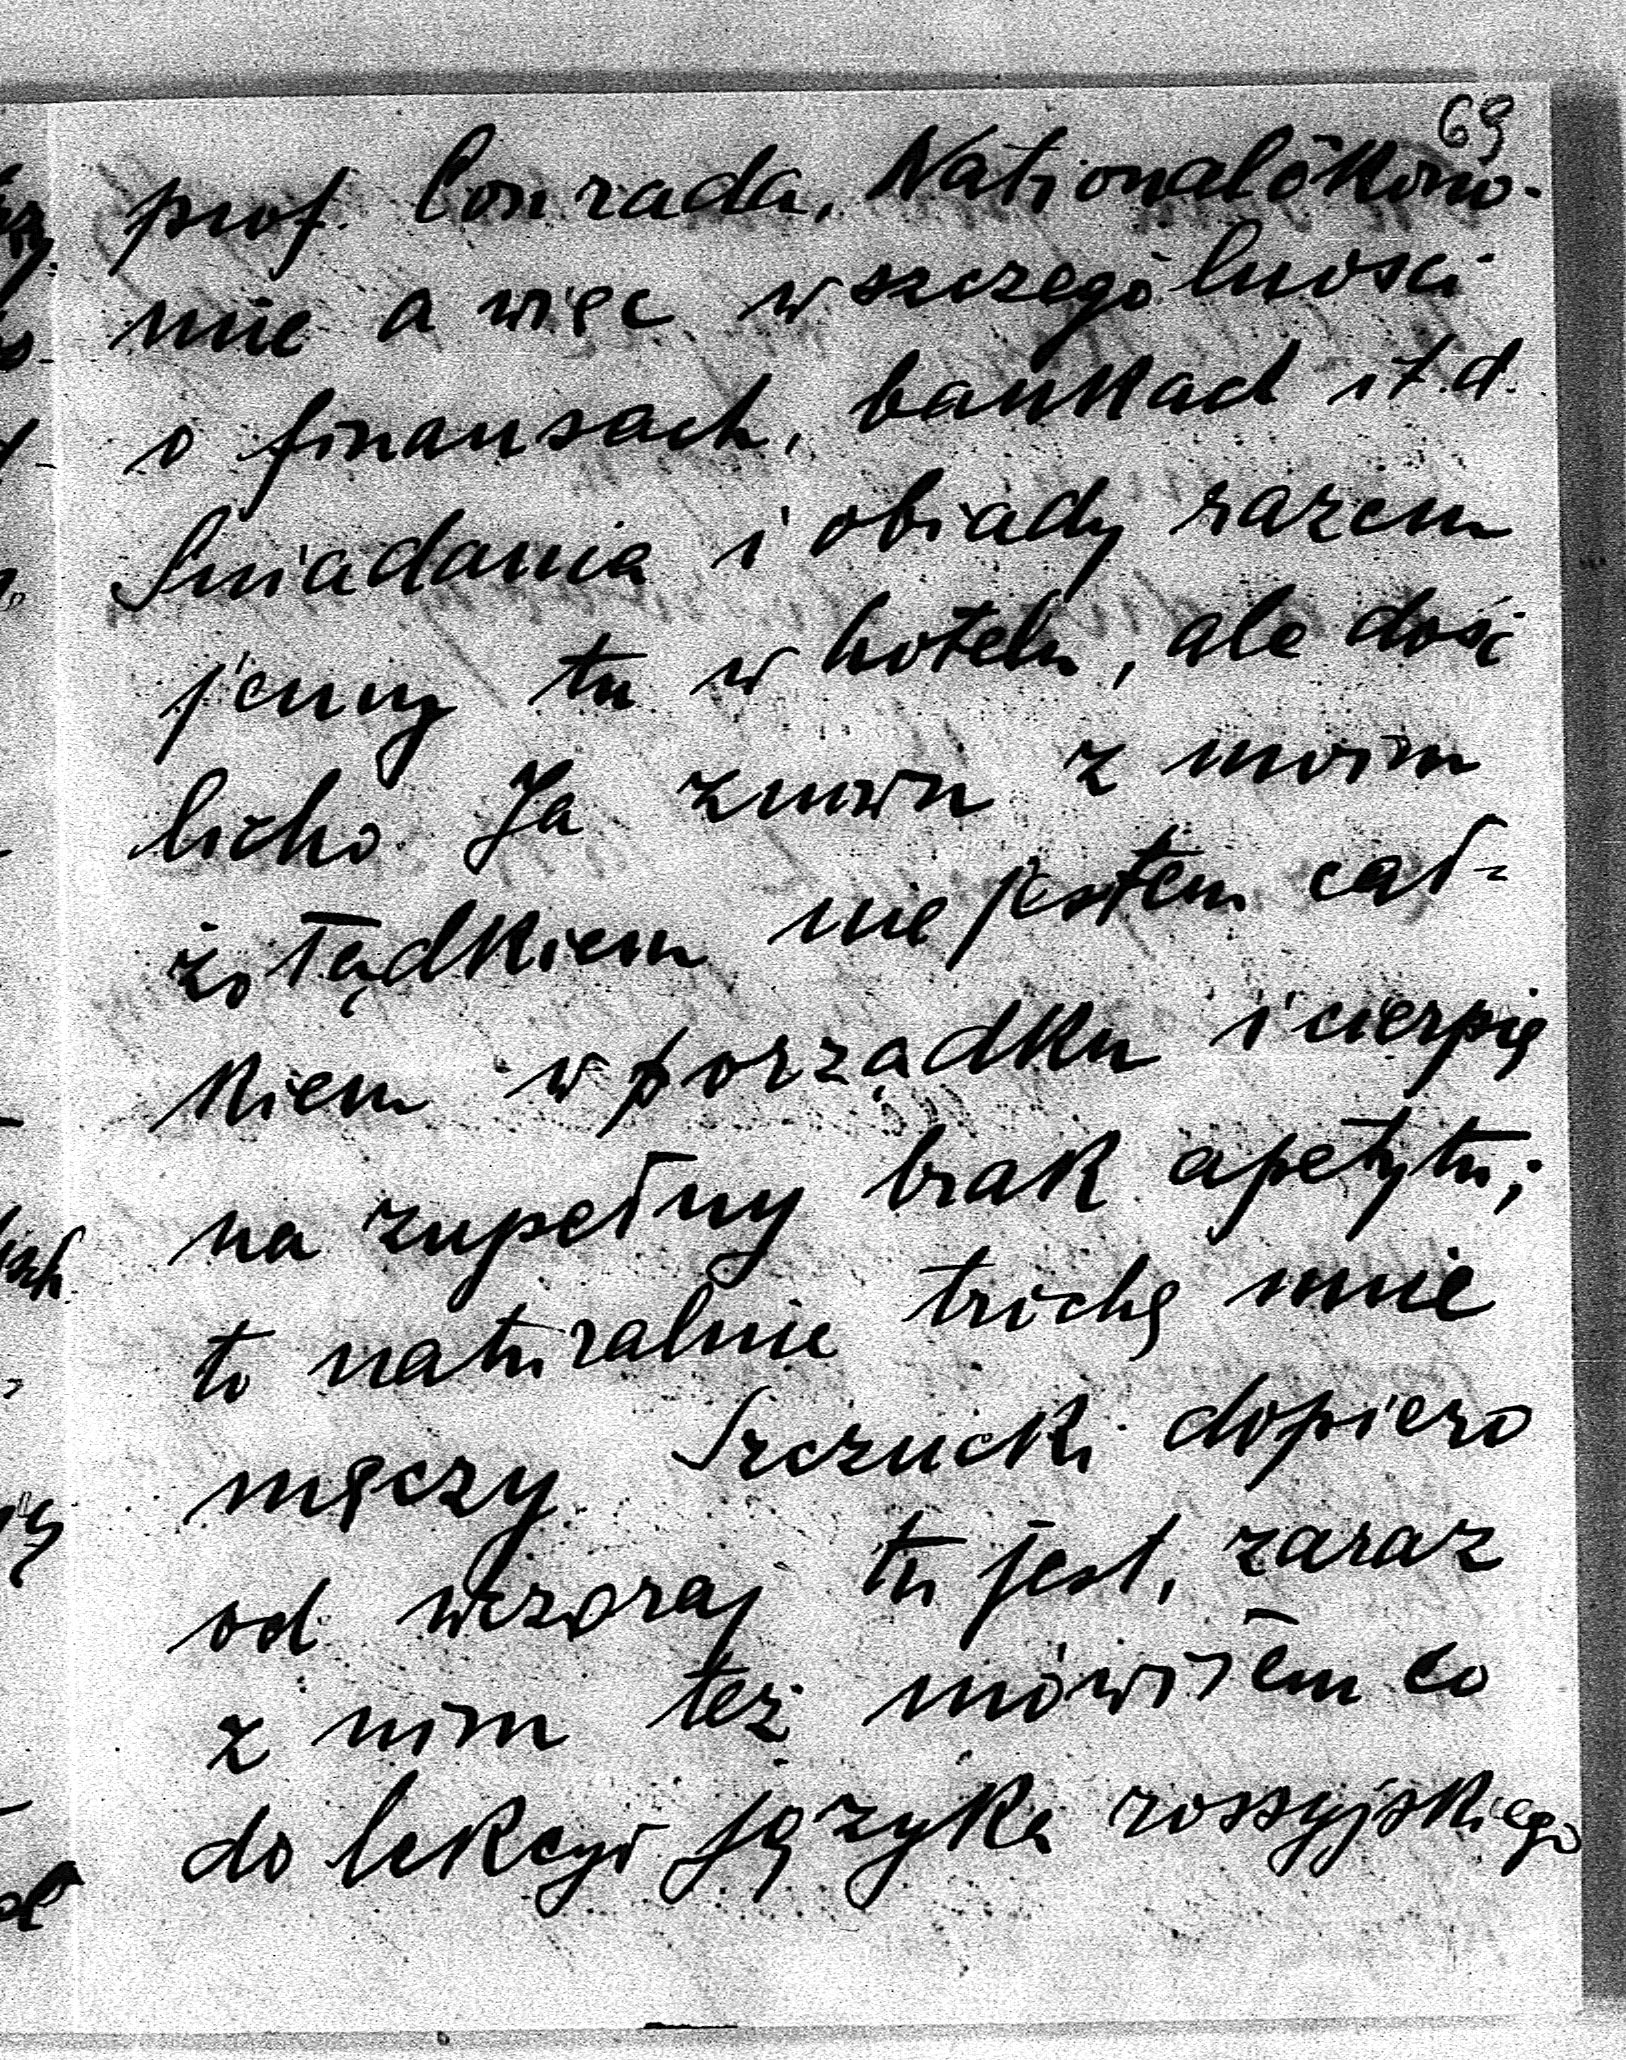 69
prof. Conrada, Nationalökono-
mie a więc w szczególności
o finansach, bankach i t.d.
Śniadania i obiady razem
jemy tu w hotelu, ale dość
licho. Ja znowu z moim
żołądkiem nie jestem cał-
kiem w porządku i cierpię
na zupełny brak apetytu;
to naturalnie trochę mnie
męczy. Szczucki dopiero
od wczoraj tu jest, zaraz
z nim też mówiłem co
do lekcyi języka rossyjskiego